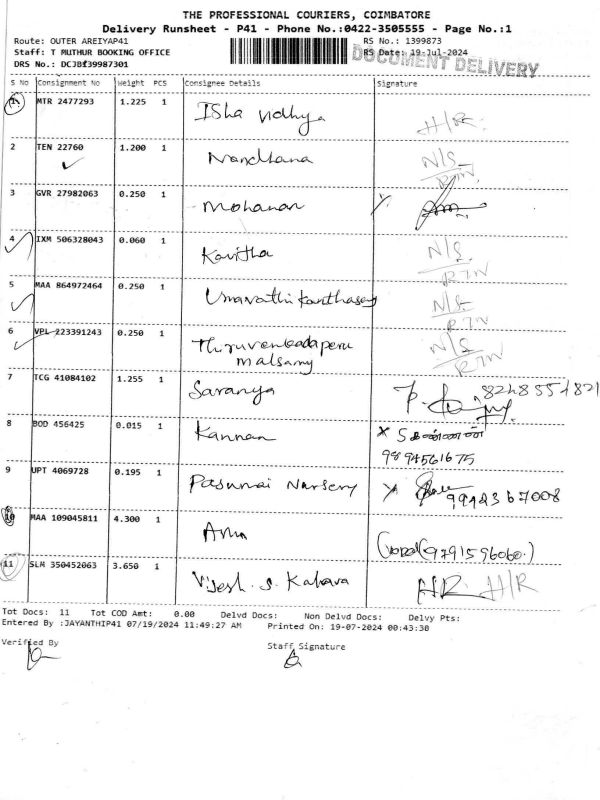 THE PROFESSIONAL COURIERS, COIMBATORE
Delivery Runsheet - P41 - Phone No.:0422-3505555 - Page No.:1
Route: OUTER AREIYAP41 RS No.: 1399873
Staff: T MUTHUR BOOKING OFFICE RS Date: 19-Jul-2024
DOCUMENT DELIVERY
S No Consignment No Weight PCS Consignee Details Signature
1 MTR 2477293 1.225 1 Isha Vidhya H/R.
2 TEN 22760 1.200 1 Nandhana N/S RTN
3 GVR 27982063 0.250 1 Mohanan
4 IXM 506328043 0.060 1 Kavitha N/S RTN
5 MAA 864972464 0.250 1 N/S RTN
6 VPL 223391243 0.250 1 Thiruvenkadaperu N/S RTN
malsamy
7 TCG 41084102 1.255 1 Saranya
8 BOD 456425 0.015 1 Kannan x S கண்ணன்
9894561675
9 UPT 4069728 0.195 1 Pasumai Nursery
10 MAA 109045811 4.300 1 (9791596060.)
11 SLM 350452063 3.650 1 H/R H/R
Tot Docs: 11 Tot COD Amt: 0.00 Delvd Docs: Non Delvd Docs: Delvy Pts:
Entered By :JAYANTHIP41 07/19/2024 11:49:27 AM Printed On: 19-07-2024 00:43:30
Verified By Staff Signature